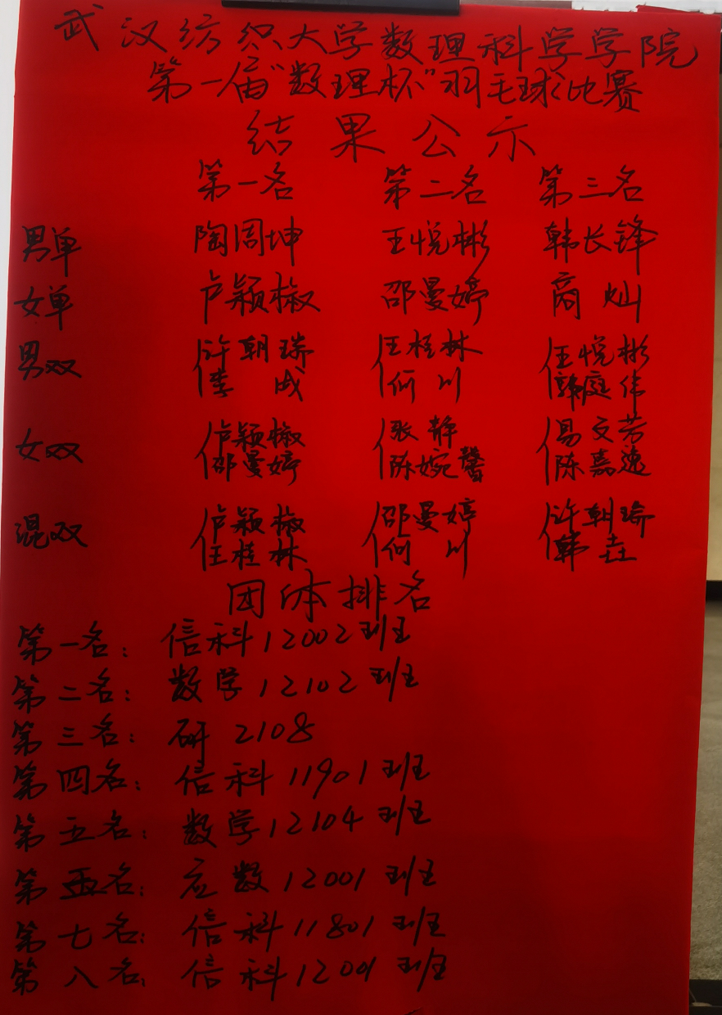 武汉纺织大学数理科学学院
第一届“数理杯”羽毛球比赛
结果公示
第一名 第二名 第三名
男单 陶周坤 王悦彬 韩长锋
女单 卢颖椒 邵曼婷 商灿
男双 许朝瑞 王桂林 王悦彬
李成 何川 郭庭伟
女双 卢颖椒 张静 易文芳
邵曼婷 陈婉馨 陈嘉逸
混双 卢颖椒 邵曼婷 许朝瑞
王桂林 何川 韩垚
团体排名
第一名：信科12002班
第二名：数学12102班
第三名：研2108
第四名：信科11901班
第五名：数学12104班
第五名：应数12001班
第七名：信科11801班
第八名：信科12001班